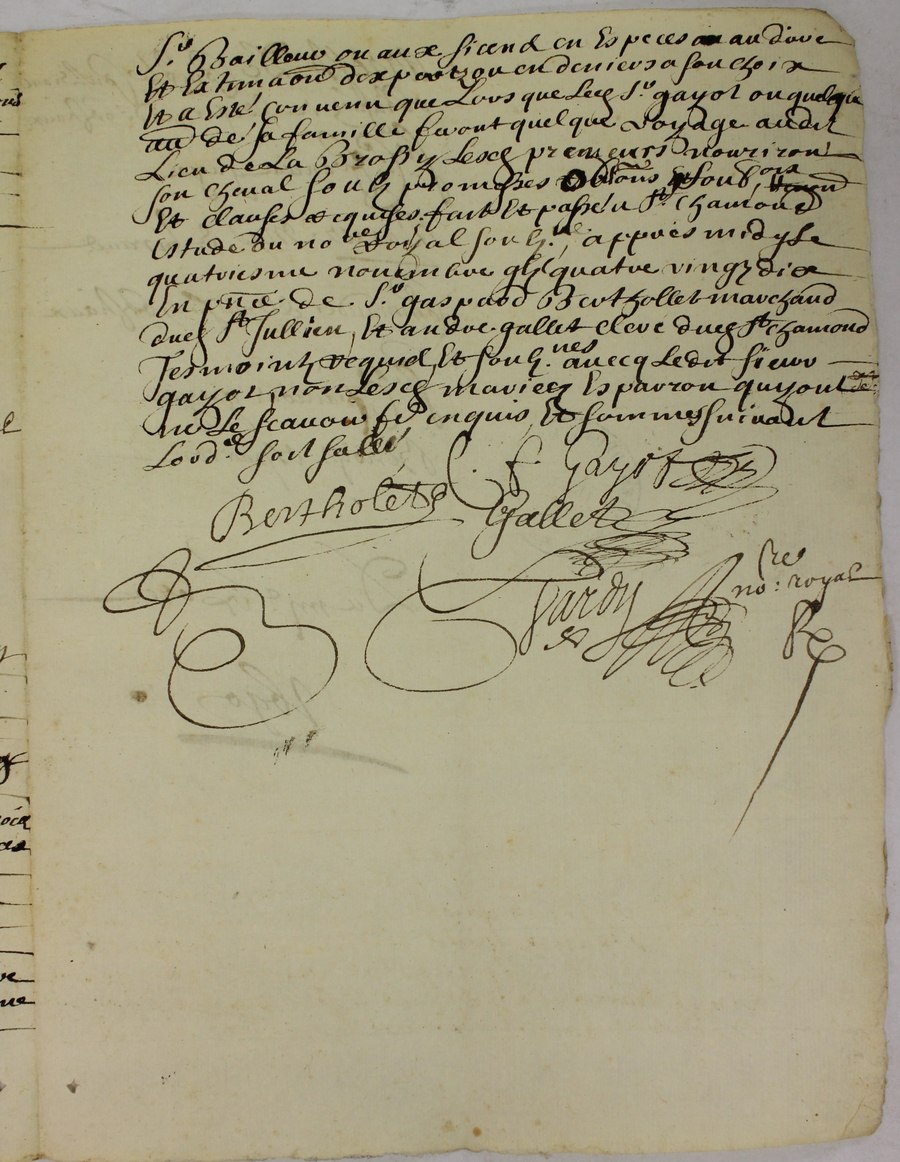 Sr Bailleur ou aux siend en Especes au dire
Et Extimaon dexpertz ou en deniers a son choix
Et a Esté convenu que Lors que Led Sr gayot ou quelqu
un de sa famille feront quelque Voyage audit
Lieu de La Brossy Lesd preneurs nouriron
son cheval soub promesses obl[ons] soub[ons]
Et clauses requises. fait Et passé a St chamond
Estude du nore Royal soubz.né appres midy Le
quatriesme novembre gbjc quatre vingz dix
En pnce de Sr gaspard Berthollet marchand
dud St Jullien, Et andre gallet eleve dud St chamond
Tesmoint requid, Et soubz.nes avecq Ledit sieur
gayot, non Lesd mariez Esparron quy ont
ne Le scavoir fe enquis, Et sommes suivant
Lord.e soit sallé
f Gayot
Bertholet
Gallet
Tardy
nores royal